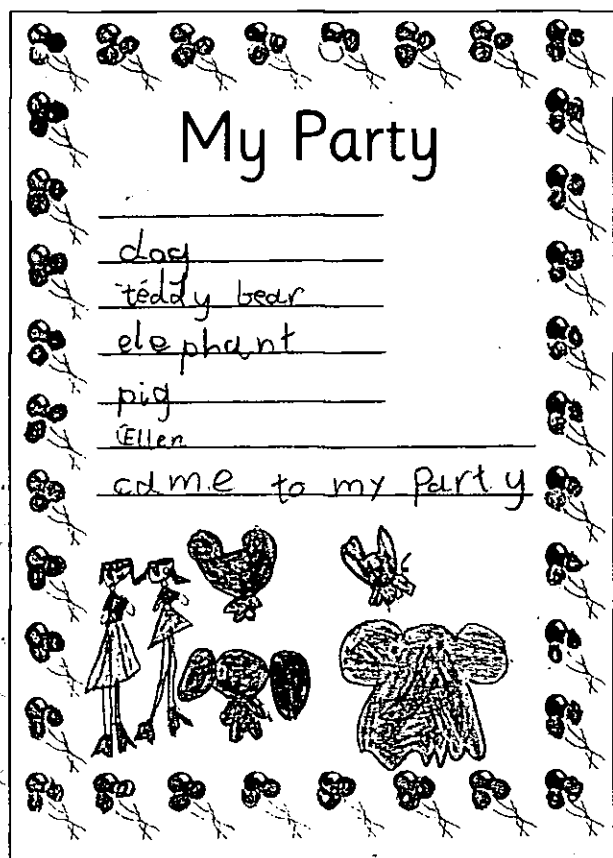 My Party
dog
teddy bear
elephant
pig
Ellen
came to my party